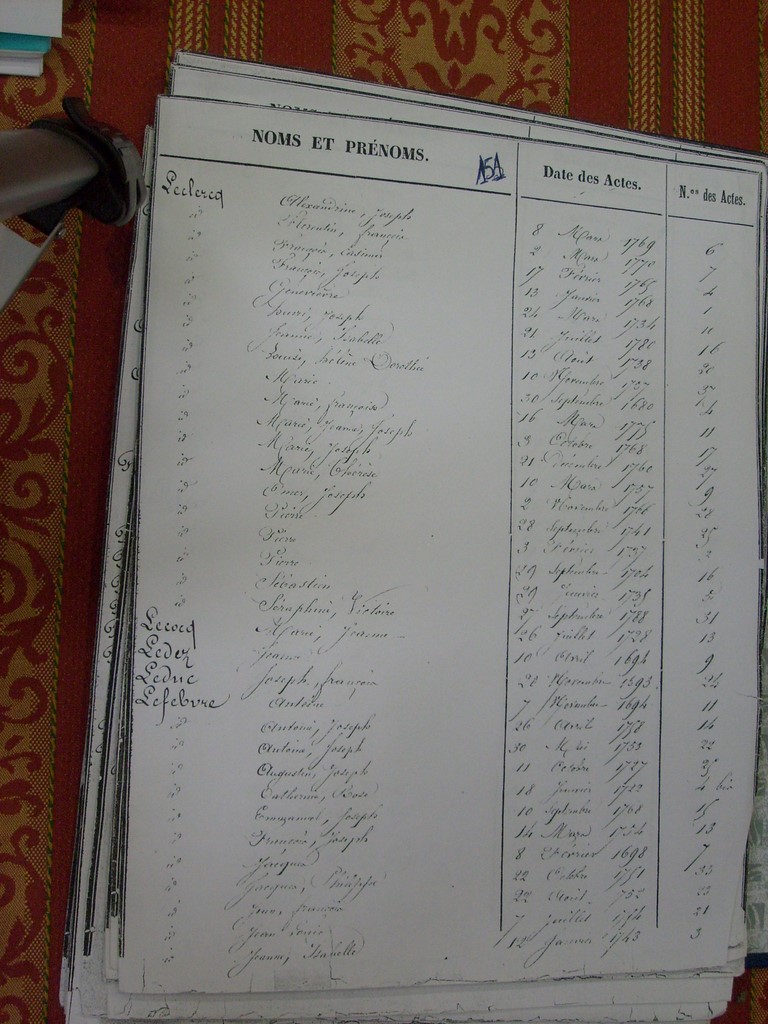 NOMS ET PRÉNOMS. 151 Date des Actes. N.os des Actes.
Leclercq Alexandrine, Joseph 8 Mars 1769 6
id Florentin, François 2 Mars 1770 7
id François, Casimir 17 Février 1765 4
id François, Joseph 13 Janvier 1768 1
id Geneviève 24 Mars 1734 11
id Henri, Joseph 21 Juillet 1780 16
id Jeanne, Isabelle 13 Août 1738 20
id Louise, Hélène Dorothée 10 Novembre 1737 37
id Marie 30 Septembre 1680 4
id Marie, françoise 16 Mars 1775 11
id Marie, Jeanne, Joseph 3 Octobre 1768 17
id Marie, Joseph 21 décembre 1760 27
id Marie, Thérèse 10 Mars 1757 9
id Omer, Joseph 2 Novembre 1766 28
id Pierre 28 Septembre 1741 25
id Pierre 3 Février 1737 3
id Pierre 29 Septembre 1704 16
id Sébastien 29 Janvier 1735 5
id Séraphine, Victoire 27 Septembre 1788 31
Lecocq Marie, Jeanne 26 Juillet 1728 13
Ledez Jeanne 10 Avril 1694 9
Leduc Joseph, françois 20 Novembre 1693 24
Lefebvre Antoine 7 Novembre 1694 11
id Antoine, Joseph 26 Avril 1758 14
id Antoine, Joseph 30 Mai 1733 22
id Augustin, Joseph 11 Octobre 1727 25
id Catherine, Rose 18 Janvier 1722 4 bis
id Emmanuel, Joseph 10 Septembre 1768 15
id François, Joseph 14 Mars 1754 13
id Jacques 8 Février 1698 7
id Jacques, Philippe 22 Octobre 1751 33
id Jean, françois 22 Août 1732 23
id Jean Louis 7 Juillet 1754 21
id Jeanne, Isabelle 12 Janvier 1743 3